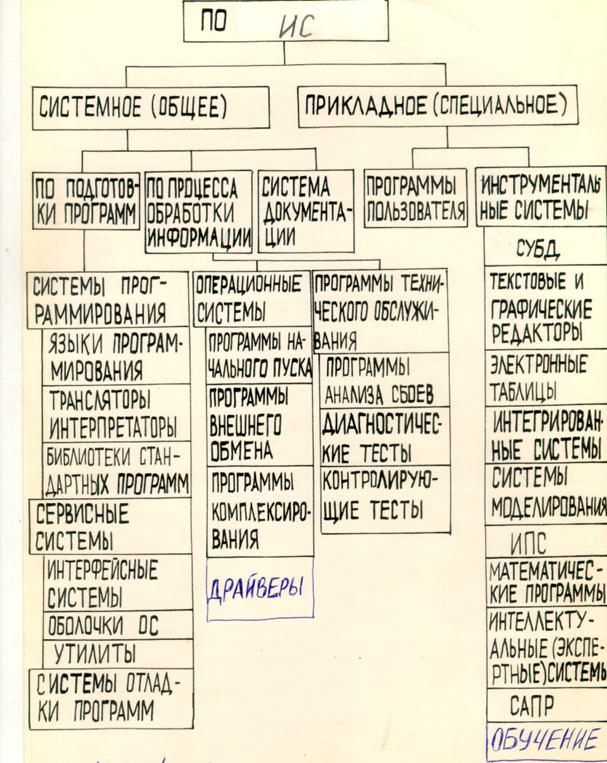 ПО ИС
СИСТЕМНОЕ (ОБЩЕЕ)
ПРИКЛАДНОЕ (СПЕЦИАЛЬНОЕ)
ПО ПОДГОТОВ-
КИ ПРОГРАММ
ПО ПРОЦЕССА
ОБРАБОТКИ
ИНФОРМАЦИИ
СИСТЕМА
ДОКУМЕНТА-
ЦИИ
ПРОГРАММЫ
ПОЛЬЗОВАТЕЛЯ
ИНСТРУМЕНТАЛЬ
НЫЕ СИСТЕМЫ
СИСТЕМЫ ПРОГ-
РАММИРОВАНИЯ
ЯЗЫКИ ПРОГРАМ-
МИРОВАНИЯ
ТРАНСЛЯТОРЫ
ИНТЕРПРЕТАТОРЫ
БИБЛИОТЕКИ СТАН-
ДАРТНЫХ ПРОГРАММ
СЕРВИСНЫЕ
СИСТЕМЫ
ИНТЕРФЕЙСНЫЕ
СИСТЕМЫ
ОБОЛОЧКИ ОС
УТИЛИТЫ
СИСТЕМЫ ОТЛАД-
КИ ПРОГРАММ
ОПЕРАЦИОННЫЕ
СИСТЕМЫ
ПРОГРАММЫ НА-
ЧАЛЬНОГО ПУСКА
ПРОГРАММЫ
ВНЕШНЕГО
ОБМЕНА
ПРОГРАММЫ
КОМПЛЕКСИРО-
ВАНИЯ
ДРАЙВЕРЫ
ПРОГРАММЫ ТЕХНИ-
ЧЕСКОГО ОБСЛУЖИ-
ВАНИЯ
ПРОГРАММЫ
АНАЛИЗА СБОЕВ
ДИАГНОСТИЧЕС-
КИЕ ТЕСТЫ
КОНТРОЛИРУЮ-
ЩИЕ ТЕСТЫ
СУБД
ТЕКСТОВЫЕ И
ГРАФИЧЕСКИЕ
РЕДАКТОРЫ
ЭЛЕКТРОННЫЕ
ТАБЛИЦЫ
ИНТЕГРИРОВАН-
НЫЕ СИСТЕМЫ
СИСТЕМЫ
МОДЕЛИРОВАНИЯ
ИПС
МАТЕМАТИЧЕС-
КИЕ ПРОГРАММЫ
ИНТЕЛЛЕКТУ-
АЛЬНЫЕ (ЭКСПЕ-
РТНЫЕ) СИСТЕМЫ
САПР
ОБУЧЕНИЕ